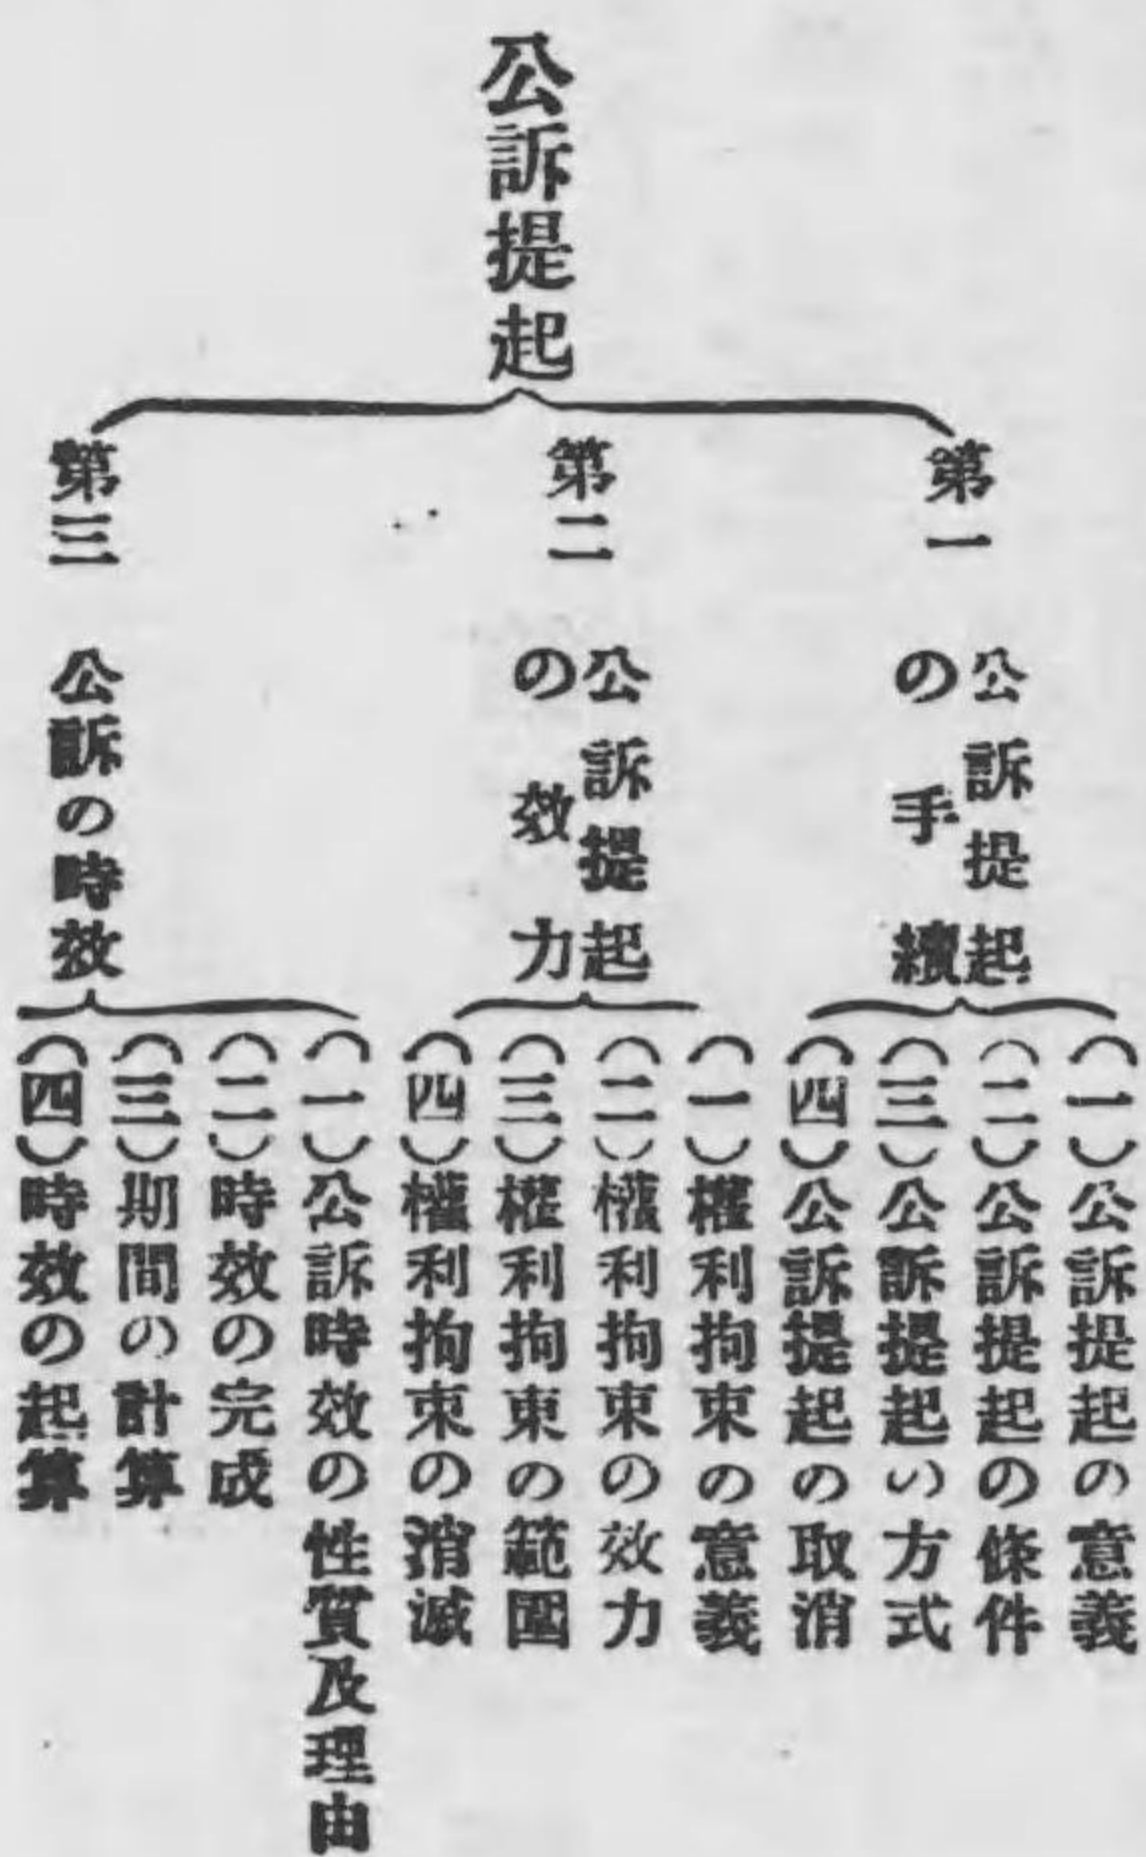 公訴提起
第一 公訴提起の手續
(一)公訴提起の意義
(二)公訴提起の條件
(三)公訴提起い方式
(四)公訴提起の取消
第二 公訴提起の效力
(一)權利拘束の意義
(二)權利拘束の效力
(三)權利拘束の範圍
(四)權利拘束の消滅
第三 公訴の時效
(一)公訴時效の性質及理由
(二)時效の完成
(三)期間の計算
(四)時效の起算